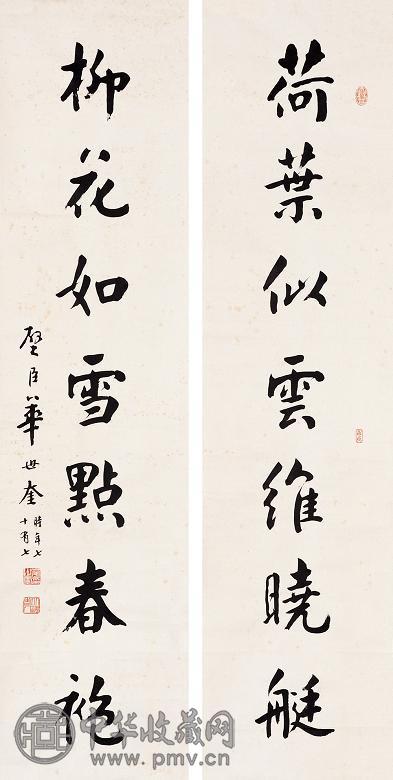 荷葉似雲維曉艇
柳花如雪點春袍
璧臣華世奎
時年七
十有七
中华收藏网
www.pmv.cn